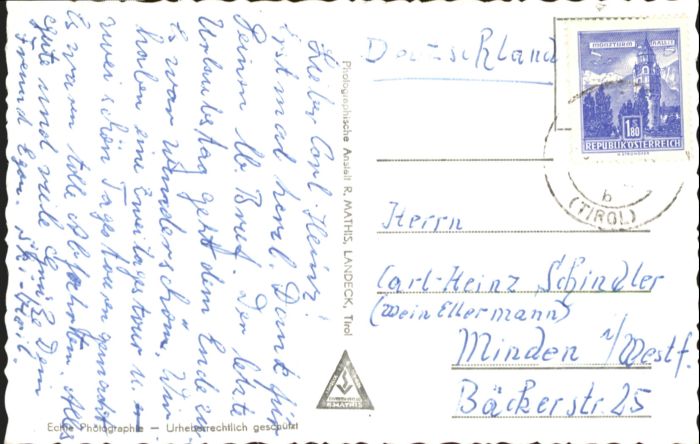 Lieber Carl-Heinz!
Erst mal herzl. Dank für
Deinen lb. Brief. Der letzte
Urlaubstag geht dem Ende zu
Es war wunderschön. Wir
haben eine Zweitagestour u.
zwei schön Tagestouren gemacht
Es waren tolle Abfahrten. Alles
Gute und viele Grüße Dein
Freund Egon. Ski-Heil.
Echte Photographie — Urheberrechtlich geschützt
Photographische Anstalt R. MATHIS, LANDECK, Tirol
R.MATHIS
Deutschland
MÜNZTURM HALL i.T.
S 1.80
REPUBLIK ÖSTERREICH
b
(TIROL)
Herrn
Carl-Heinz Schindler
(Wein Ellermann)
Minden i/Westf.
Bäckerstr. 25